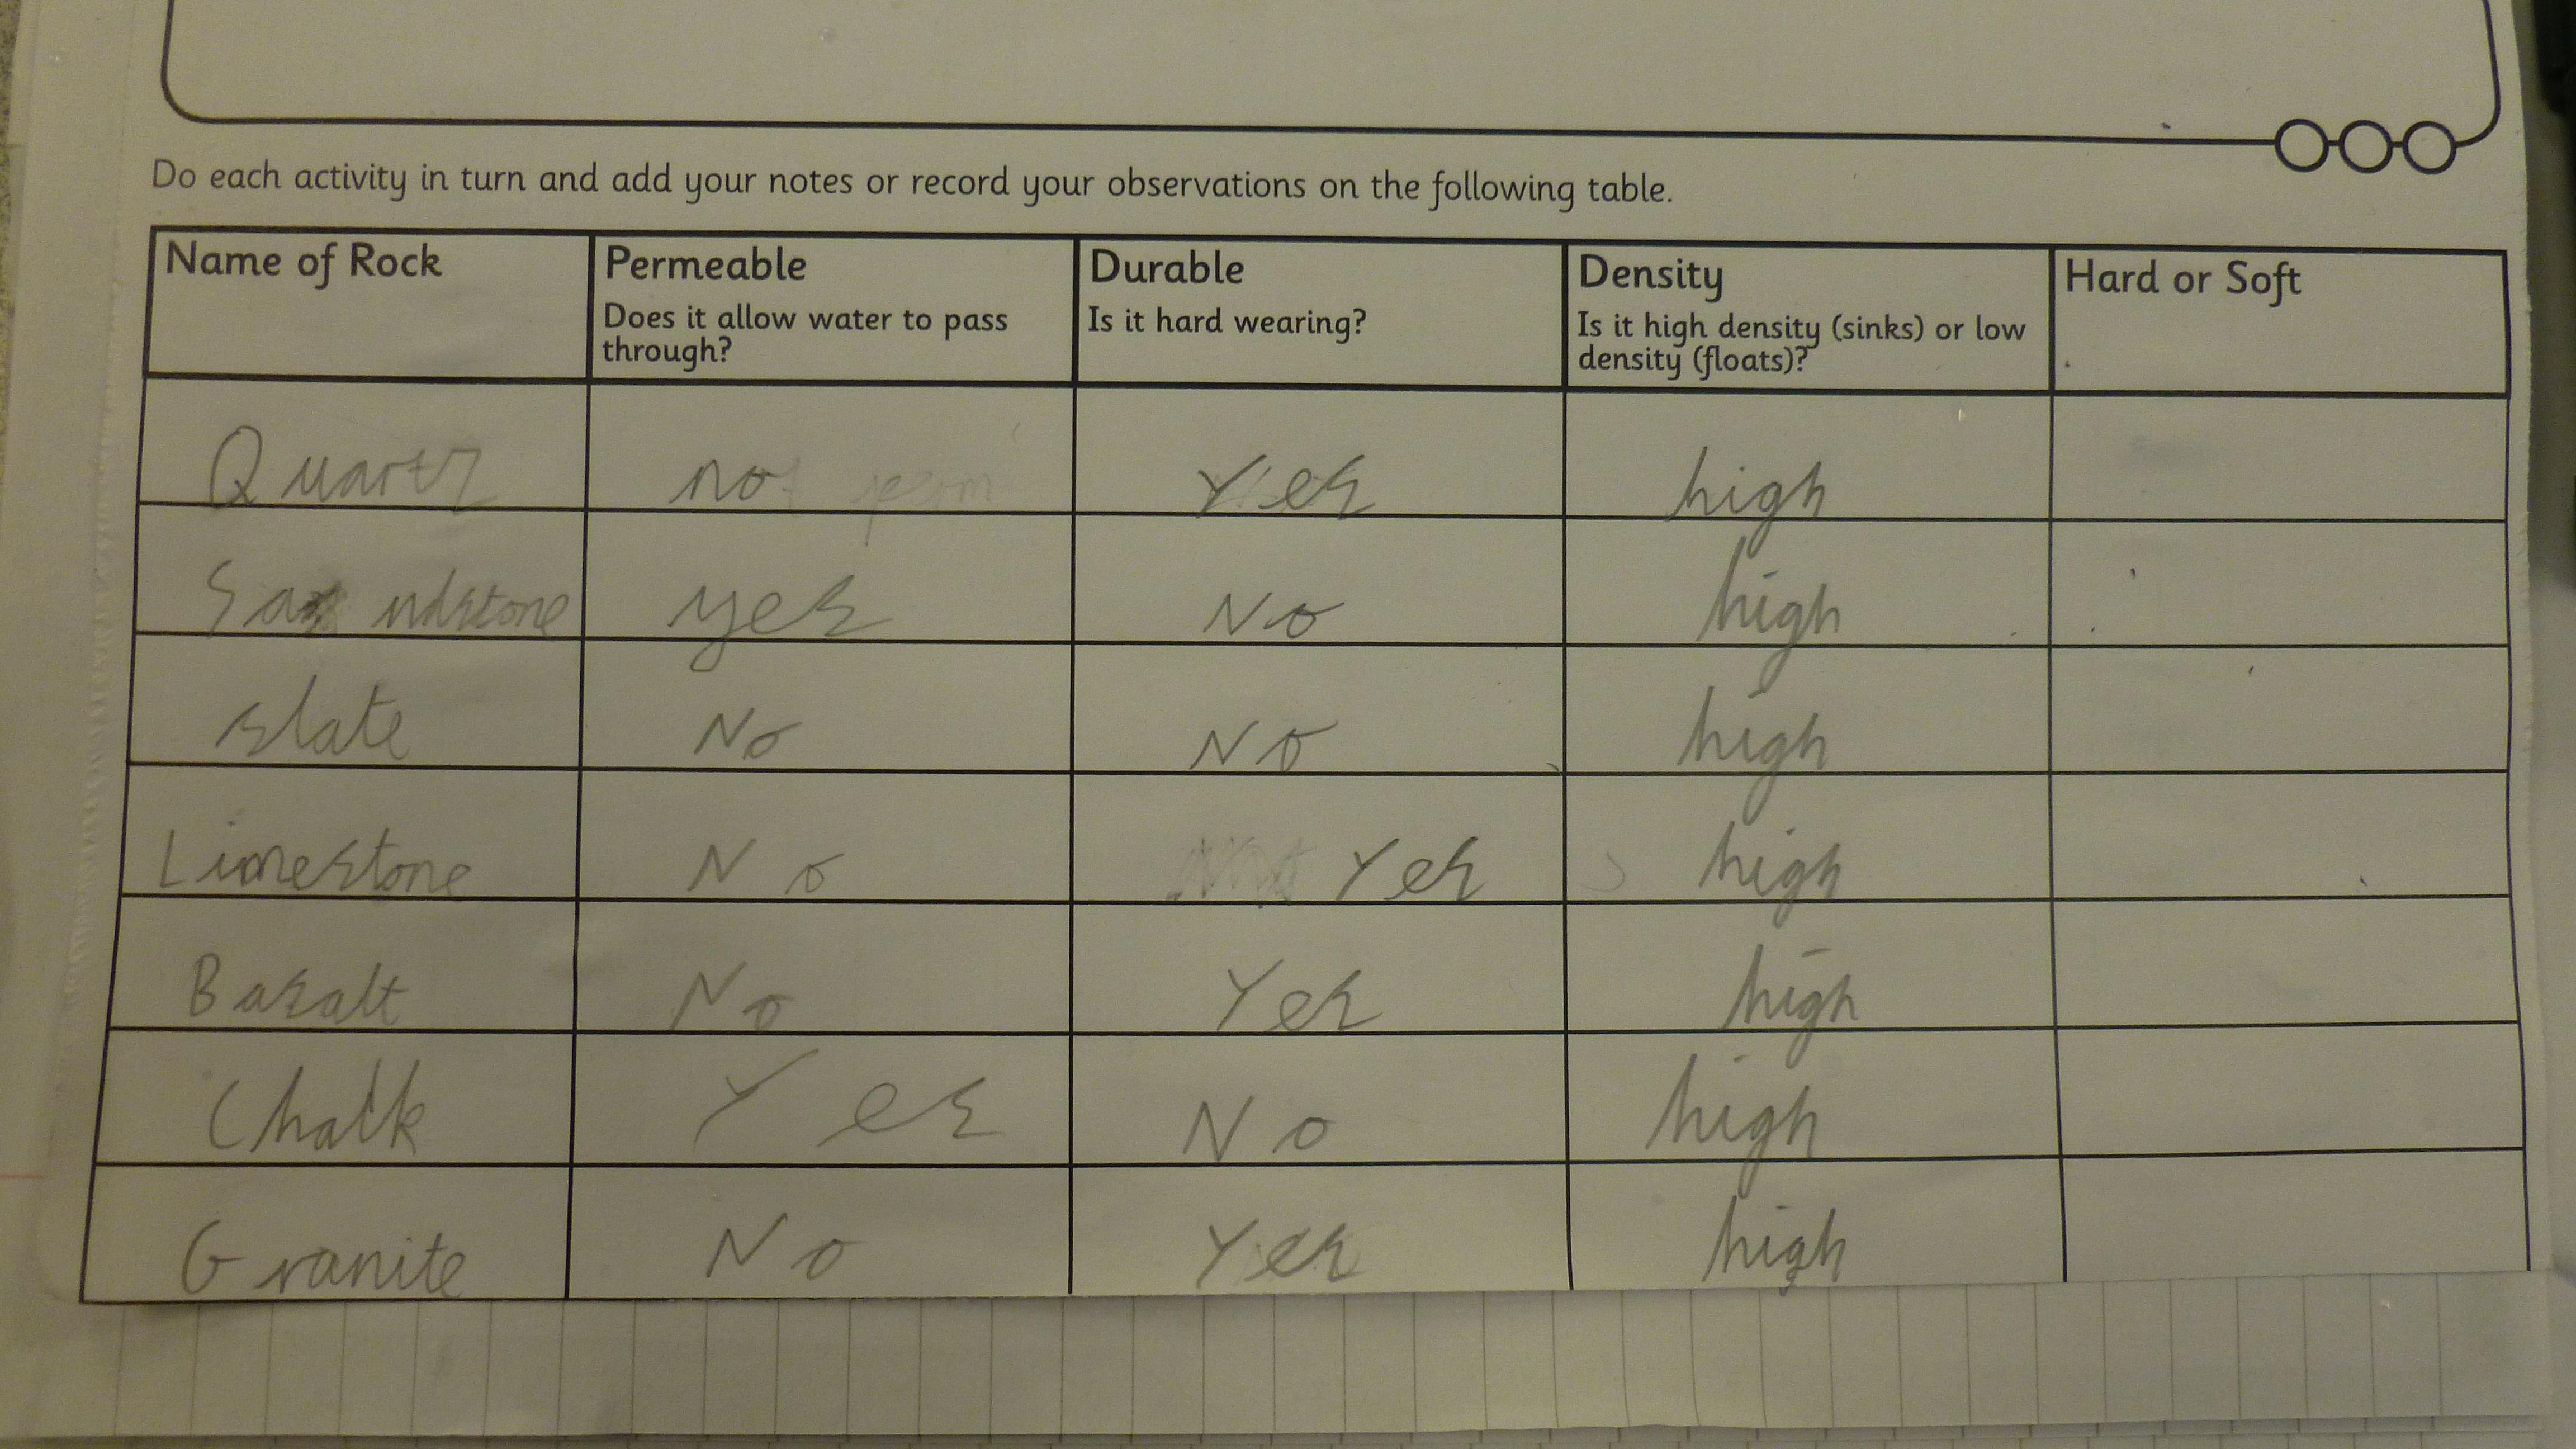 Do each activity in turn and add your notes or record your observations on the following table.
Name of Rock Permeable Durable Density Hard or Soft
Does it allow water to pass through? Is it hard wearing? Is it high density (sinks) or low density (floats)?
Quartz no Yes high
Sandstone yes No high
slate No No high
Limestone No Yes high
Basalt No Yes high
Chalk Yes No high
Granite No Yes high